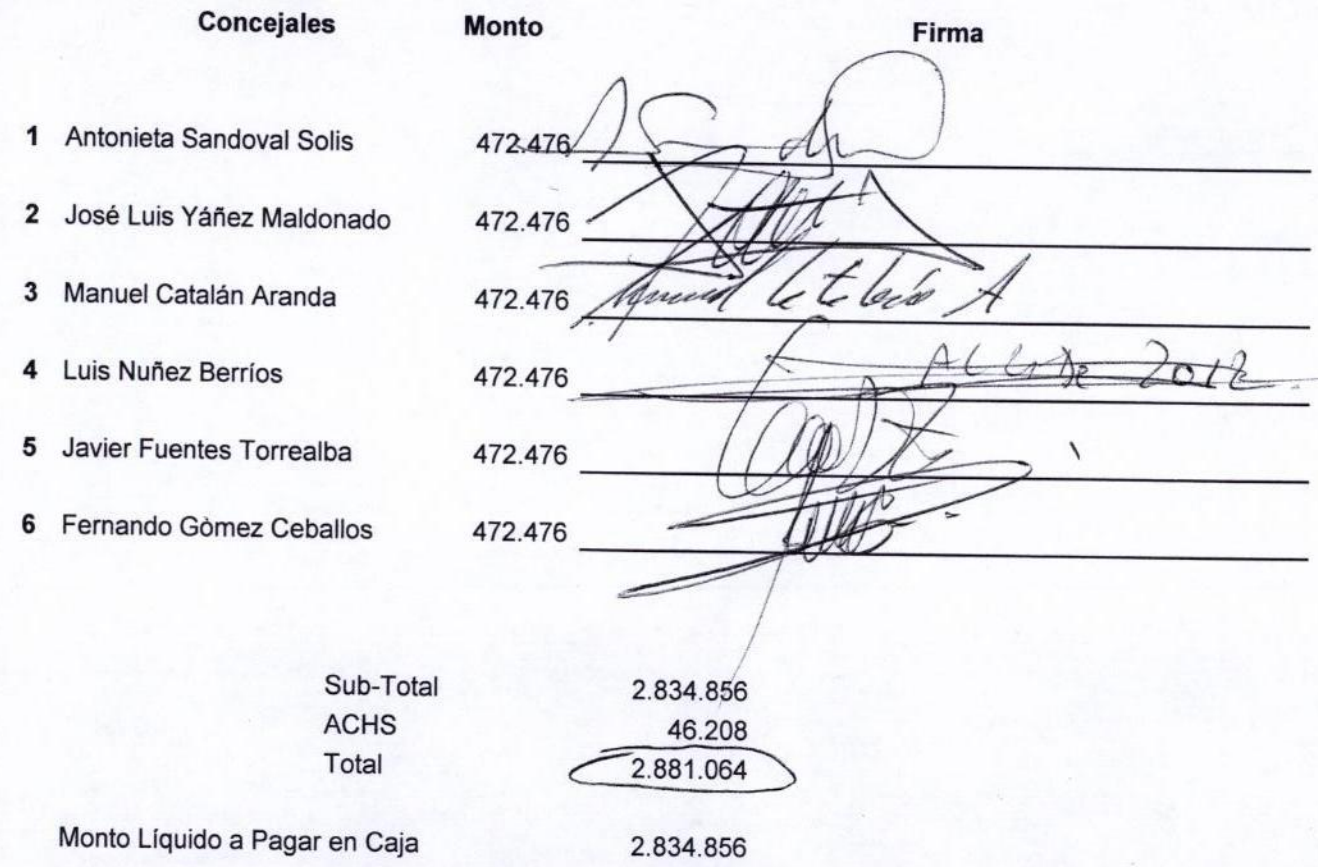 Concejales Monto Firma
1 Antonieta Sandoval Solis 472.476
2 José Luis Yáñez Maldonado 472.476
3 Manuel Catalán Aranda 472.476
4 Luis Nuñez Berríos 472.476 2012
5 Javier Fuentes Torrealba 472.476
6 Fernando Gòmez Ceballos 472.476
Sub-Total 2.834.856
ACHS 46.208
Total 2.881.064
Monto Líquido a Pagar en Caja 2.834.856